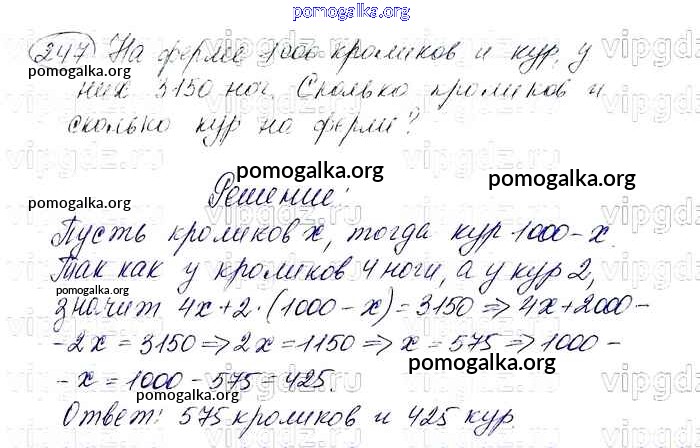 pomogalka.org
247 На ферме 1000 кроликов и кур, у
них 3150 ног. Сколько кроликов и
сколько кур на ферме?
Решение:
Пусть кроликов x, тогда кур 1000-x.
Так как у кроликов 4 ноги, а у кур 2,
значит 4x+2·(1000-x)=3150⇒4x+2000-
-2x=3150⇒2x=1150⇒x=575⇒1000-
-x=1000-575=425.
Ответ: 575 кроликов и 425 кур.
pomogalka.org
pomogalka.org
pomogalka.org
pomogalka.org
pomogalka.org
pomogalka.org
pomogalka.org
pomogalka.org
pomogalka.org
vipgdz.ru